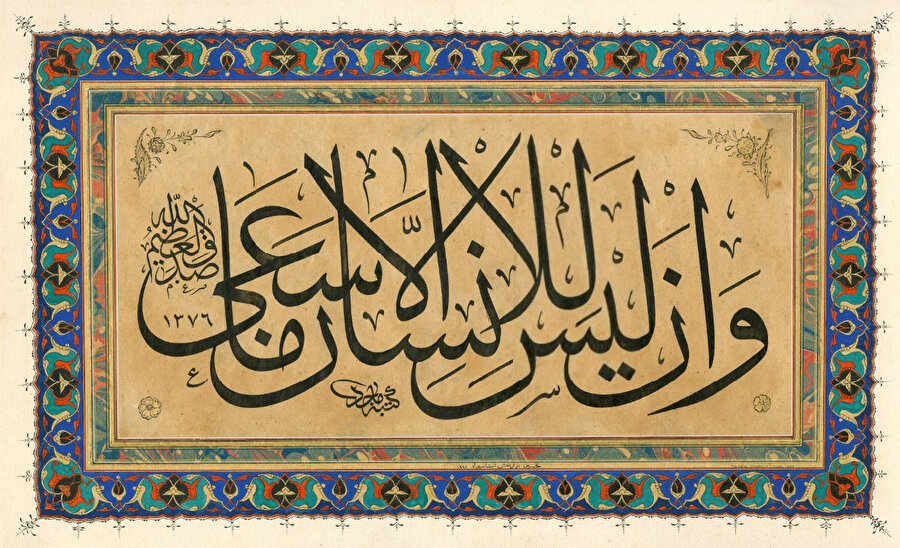 وَاَن لَيسَ لِلاِنسَانِ اِلَّا مَا سَعٰى
صدق الله العظيم
١٣٧٦
كتبه ماجد